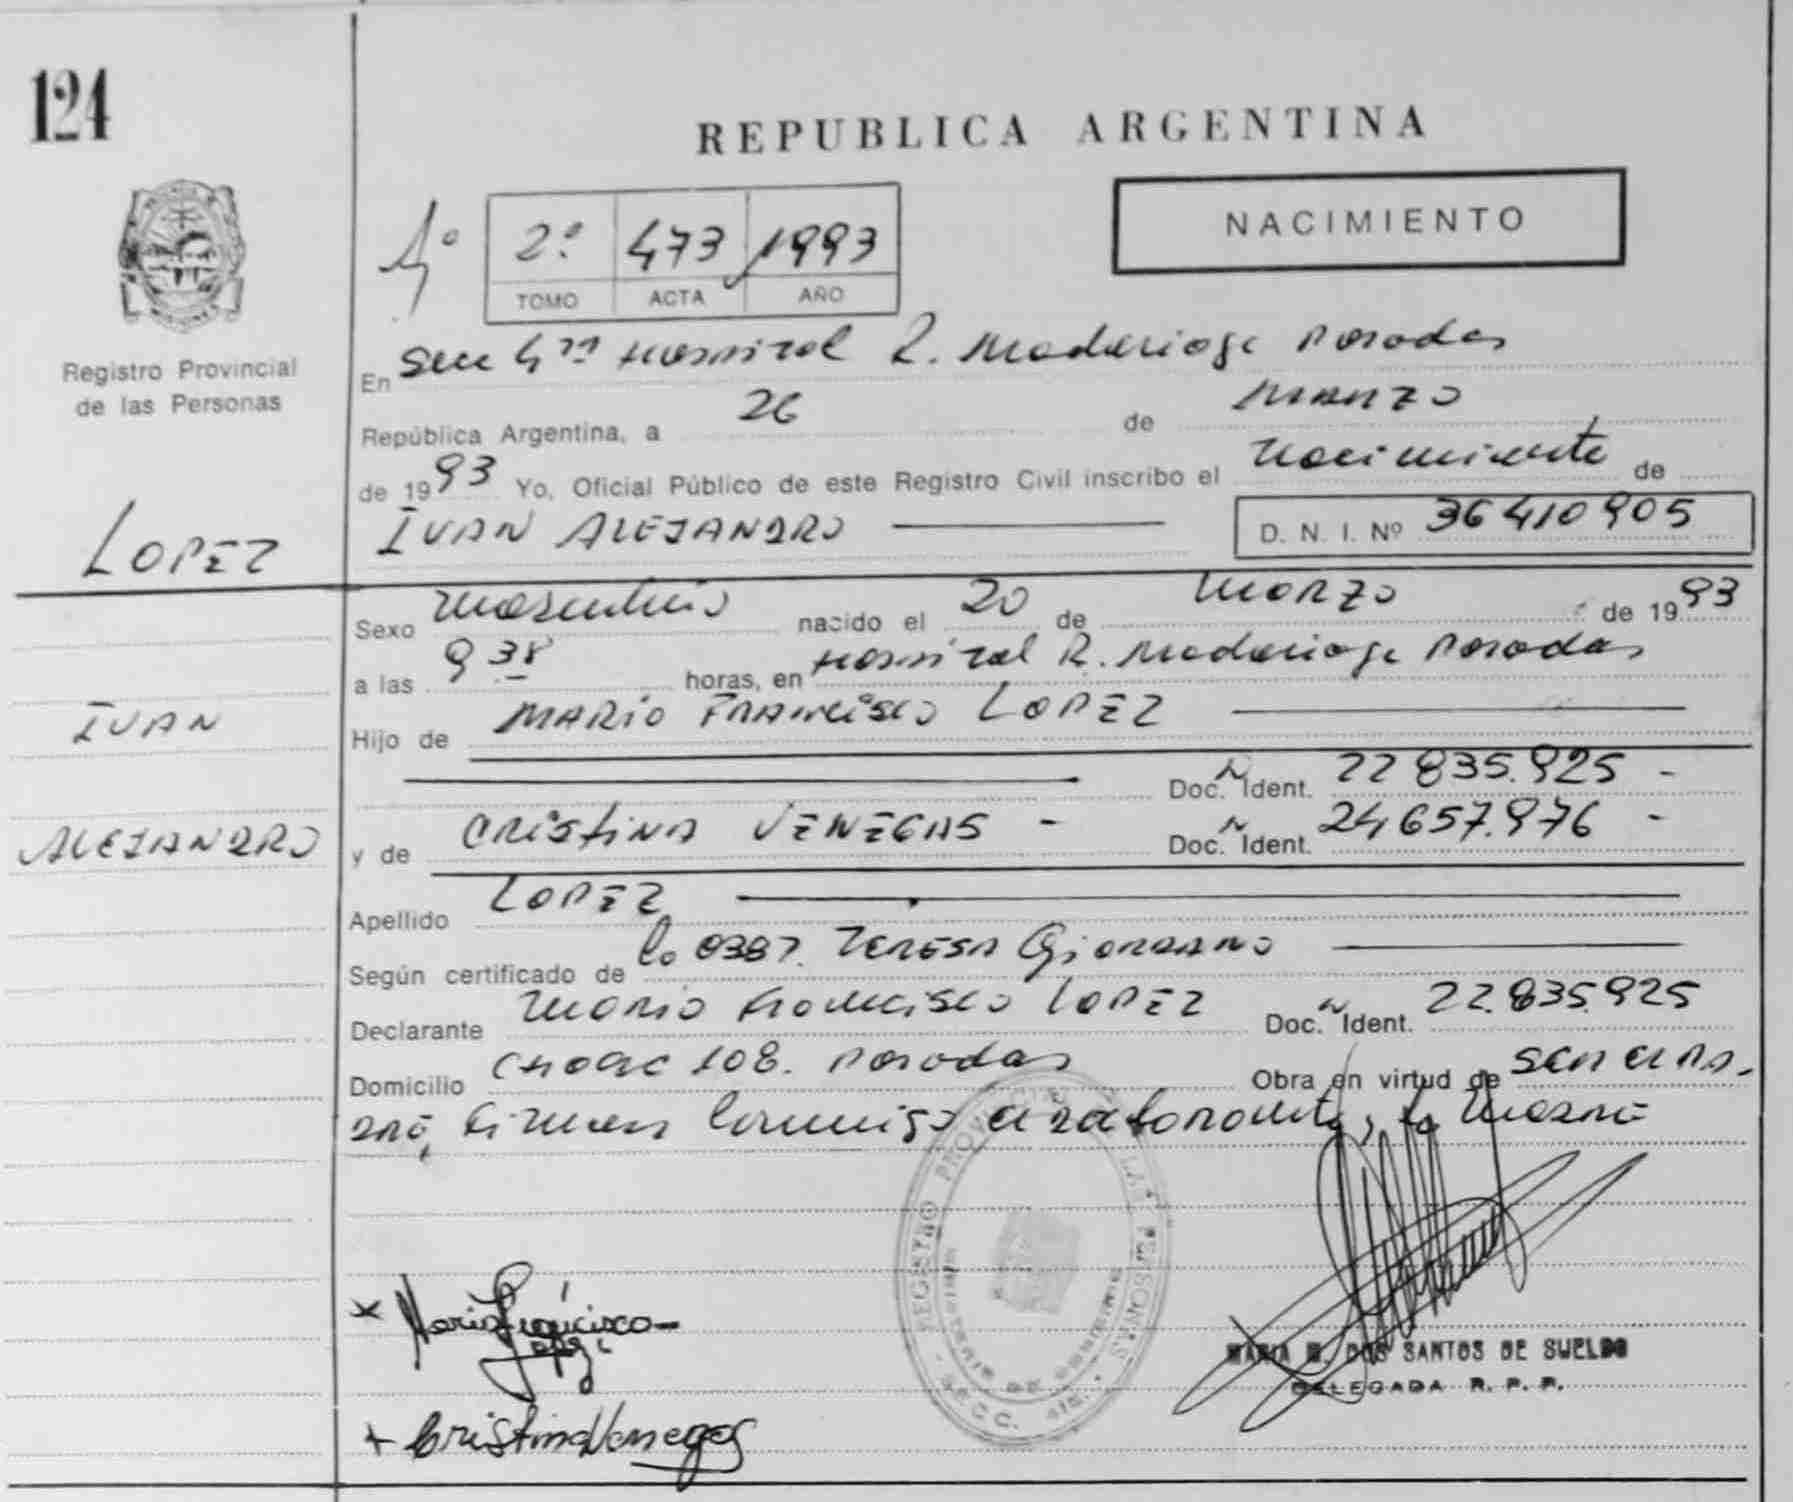 124
REPUBLICA ARGENTINA
NACIMIENTO
4º 2º 473 1993
TOMO ACTA AÑO
Registro Provincial
de las Personas
En Secc 4ta Hospital R. Madariaga Posadas
República Argentina, a 26 de Marzo
de 1993 Yo, Oficial Público de este Registro Civil inscribo el Nacimiento de
IVAN ALEJANDRO D. N. I. Nº 36410905
LOPEZ
Sexo Masculino nacido el 20 de Marzo de 1993
a las 9 38 horas, en Hospital R. Madariaga Posadas
IVAN
Hijo de MARIO FRANCISCO LOPEZ
Doc. N Ident. 22 835.925 -
ALEJANDRO
y de CRISTINA VENEGAS - Doc. N Ident. 24,657.976 -
Apellido LOPEZ
Según certificado de 0387. TERESA GIORDANO
Declarante Mario Francisco LOPEZ Doc. N Ident. 22.835.925
Domicilio 108. Posadas Obra en virtud de ser el pa-
dre, firman conmigo el declarante, la madre
REGISTRO PROVINCIAL DE LAS PERSONAS
MINISTERIO DE GOBIERNO
SECC. 4ta.
x Mario Francisco
Lopez
MARIA M. DOS SANTOS DE SUELDO
DELEGADA R. P. P.
+ Cristina Venegas